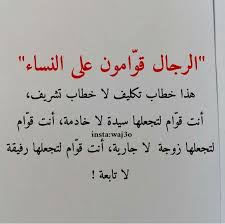 "الرجال قوّامون على النساء"
هذا خطاب تكليف لا خطاب تشريف،
أنت قوّام لتجعلها سيدة لا خادمة، أنت قوّام
insta:waj3o
لتجعلها زوجة لا جارية، أنت قوّام لتجعلها رفيقة
لا تابعة !